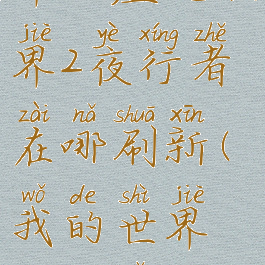 jiè yè xíng zhě
界2夜行者
zài nǎ shuā xīn
在哪刷新(
wǒ de shì jiè
我的世界